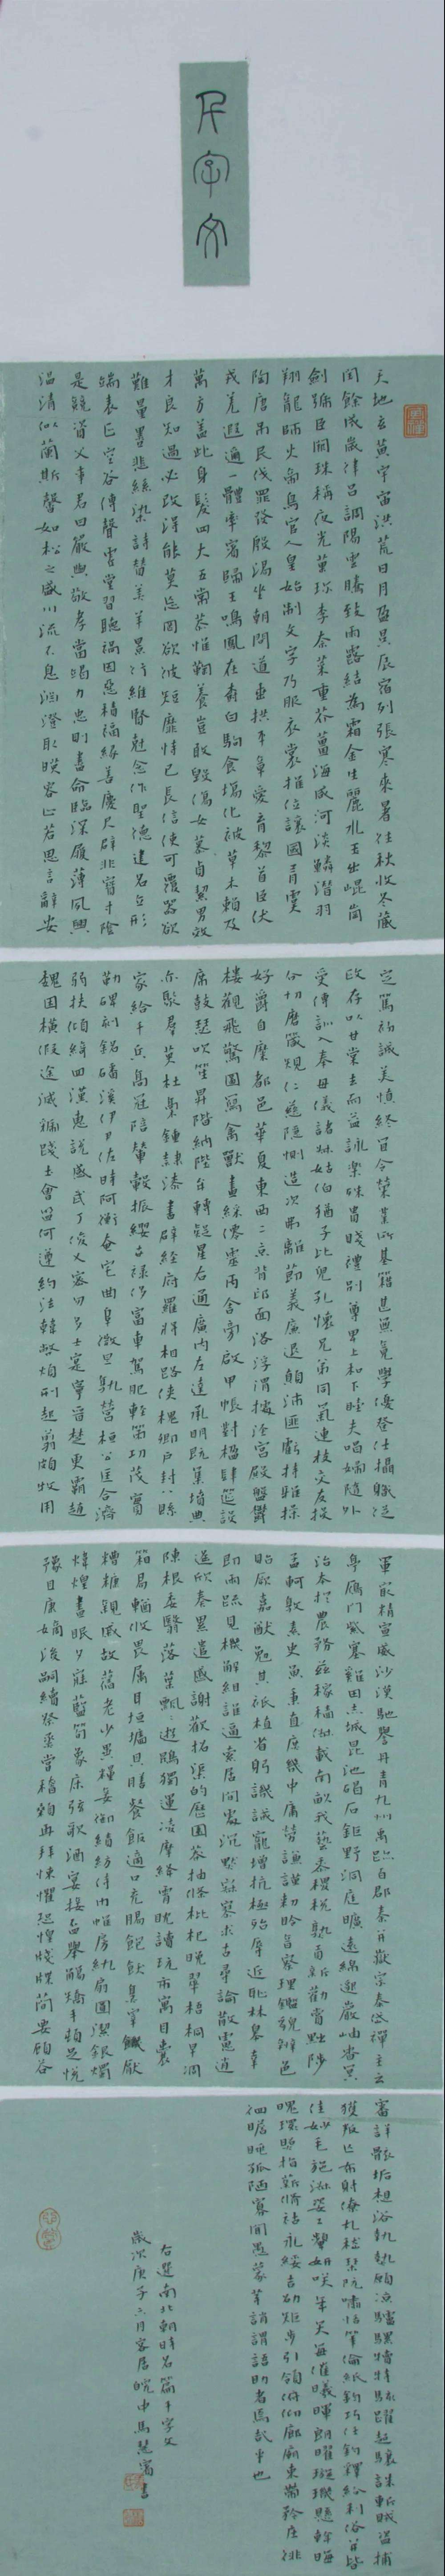 千字文
天地玄黃宇宙洪荒日月盈昃辰宿列張寒來暑往秋收冬藏
閏餘成歲律呂調陽雲騰致雨露結為霜金生麗水玉出崐岡
劍號巨闕珠稱夜光菓珍李柰菜重芥薑海咸河淡鱗潛羽
翔龍師火帝鳥官人皇始制文字乃服衣裳推位讓國有虞
陶唐吊民伐罪發殷湯坐朝問道垂拱平章愛育黎首臣伏
戎羌遐邇一體率賓歸王鳴鳳在樹白駒食場化被草木賴及
萬方蓋此身髮四大五常恭惟鞠養豈敢毀傷女慕貞潔男效
才良知過必改得能莫忘罔欲彼短靡恃己長信使可覆器欲
難量墨悲絲染詩贊羔羊景行維賢尅念作聖德建名立形
端表正空谷傳聲虛堂習聽禍因惡積福緣善慶尺辟非寶寸陰
是競資父事君曰嚴與敬孝當竭力忠則盡命臨深履薄夙興
溫清似蘭斯馨如松之盛川流不息淵澄取暎容止若思言辭安
定篤初誠美慎終宜令榮業所基籍甚無竟學優登仕攝職從
政存以甘棠去而益詠樂殊貴賤禮別尊卑上和下睦夫唱婦隨外
受傅訓入奉母儀諸姑伯猶子比兒孔懷兄弟同氣連枝交友投
分切磨箴規仁慈隱惻造次弗離節義廉退顛沛匪虧持雅操
好爵自縻都邑華夏東西二京背邙面洛浮渭據涇宮殿盤鬱
樓觀飛驚圖寫禽獸畫綵仙靈丙舍旁啟甲帳對楹肆筵設
席鼓瑟吹笙昇階納陛弁轉疑星右通廣內左達承明既集墳典
亦聚群英杜稾鍾隸漆書壁經府羅將相路俠槐卿戶封八縣
家給千兵高冠陪輦轂振纓世祿侈富車駕肥輕策功茂實
勒碑刻銘磻溪伊尹佐時阿衡奄宅曲阜微旦孰營桓公匡合濟
弱扶傾綺回漢惠說感武丁俊乂密勿多士寔寧晉楚更霸趙
魏困橫假途滅虢踐土會盟何遵約法韓弊煩刑起翦頗牧用
軍最精宣威沙漠馳譽丹青九州禹跡百郡秦并嶽宗泰岱禪主云
亭鴈門紫塞雞田赤城昆池碣石鉅野洞庭曠遠綿邈巖岫杳冥
治本於農務茲稼穡俶載南畝我藝黍稷稅熟貢新勸賞黜陟
孟軻敦素史魚秉直庶幾中庸勞謙謹勅聆音察理鑑貌辨色
貽厥嘉猷勉其祗植省躬譏誡寵增抗極殆辱近恥林皋幸
即兩疏見機解組誰逼索居閒處沉默寂寥求古尋論散慮逍
遙欣奏累遣慼謝歡招渠的歷園莽抽條枇杷晚翠梧桐早凋
陳根委翳落葉飄飄遊鵾獨運凌摩絳霄耽讀玩市寓目囊
箱易輶攸畏屬耳垣墻具膳餐飯適口充腸飽飫烹宰饑厭
糟糠親戚故舊老少異糧妾御績紡侍巾帷房紈扇圓潔銀燭
煒煌晝眠夕寐藍筍象床弦歌酒宴接杯舉觴矯手頓足悅
豫且康嫡後嗣續祭祀烝嘗稽顙再拜悚懼恐惶牋牒簡要顧答
審詳骸垢想浴執熱願涼驢騾犢特駭躍超驤誅斬賊盜捕
獲叛亡布射僚丸嵇琴阮嘯恬筆倫紙鈞巧任釣釋紛利俗並皆
佳妙毛施淑姿工顰妍咲年矢每催曦暉朗曜璇璣懸斡晦
魄環照指薪修祜永綏吉劭矩步引領俯仰廊廟束帶矜庄徘
徊瞻眺孤陋寡聞愚蒙等誚謂語助者焉哉乎也
右選南北朝時名篇千字文
歲次庚子六月客居皖中馬慧賓書